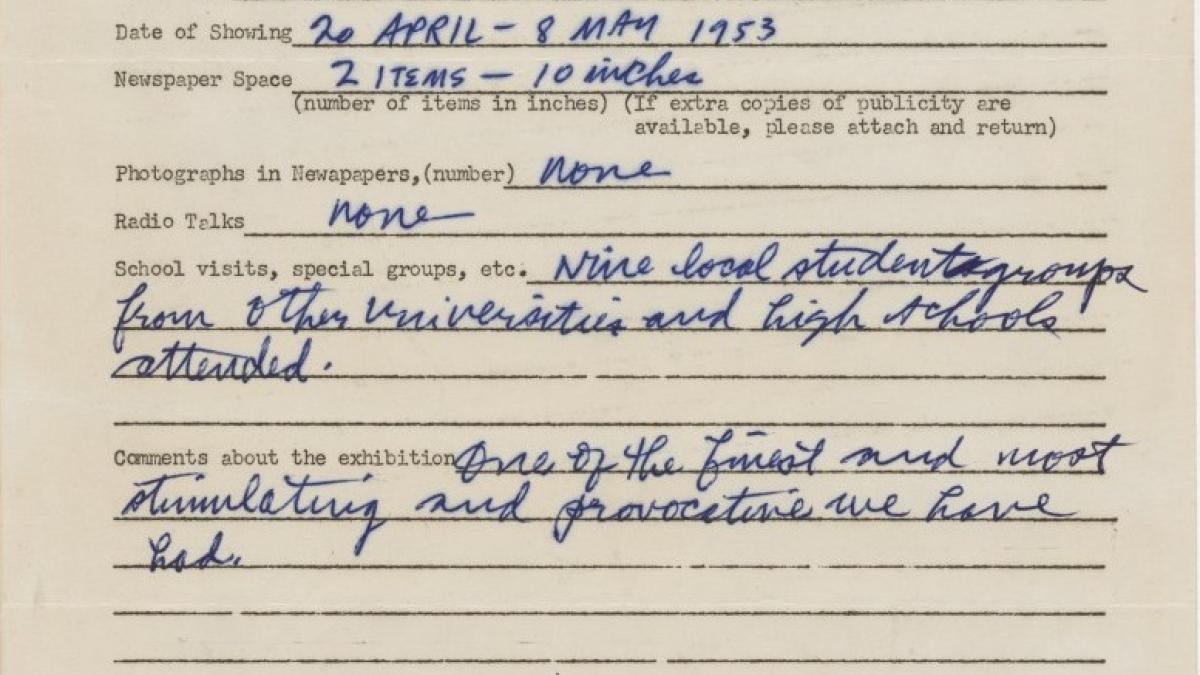 Date of Showing 20 APRIL - 8 MAY 1953
Newspaper Space 2 ITEMS - 10 inches
(number of items in inches) (If extra copies of publicity are
available, please attach and return)
Photographs in Newapapers,(number) none
Radio Talks none
School visits, special groups, etc. Nine local student groups
from other universities and high schools
attended.
Comments about the exhibition One of the finest and most
stimulating and provocative we have
had.